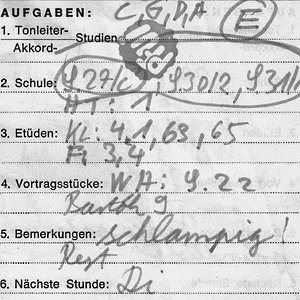 AUFGABEN: C, G, D, A (E)
1. Tonleiter-
Akkord- Studien
2. Schule: S. 27/c, S. 30/2, S. 31/1
HT: 1
3. Etüden: KL: 4, 1, 63, 65
F: 3, 4
4. Vortragsstücke: WA: S. 22
Barth 9
5. Bemerkungen: schlampig!
Rest
6. Nächste Stunde: Di